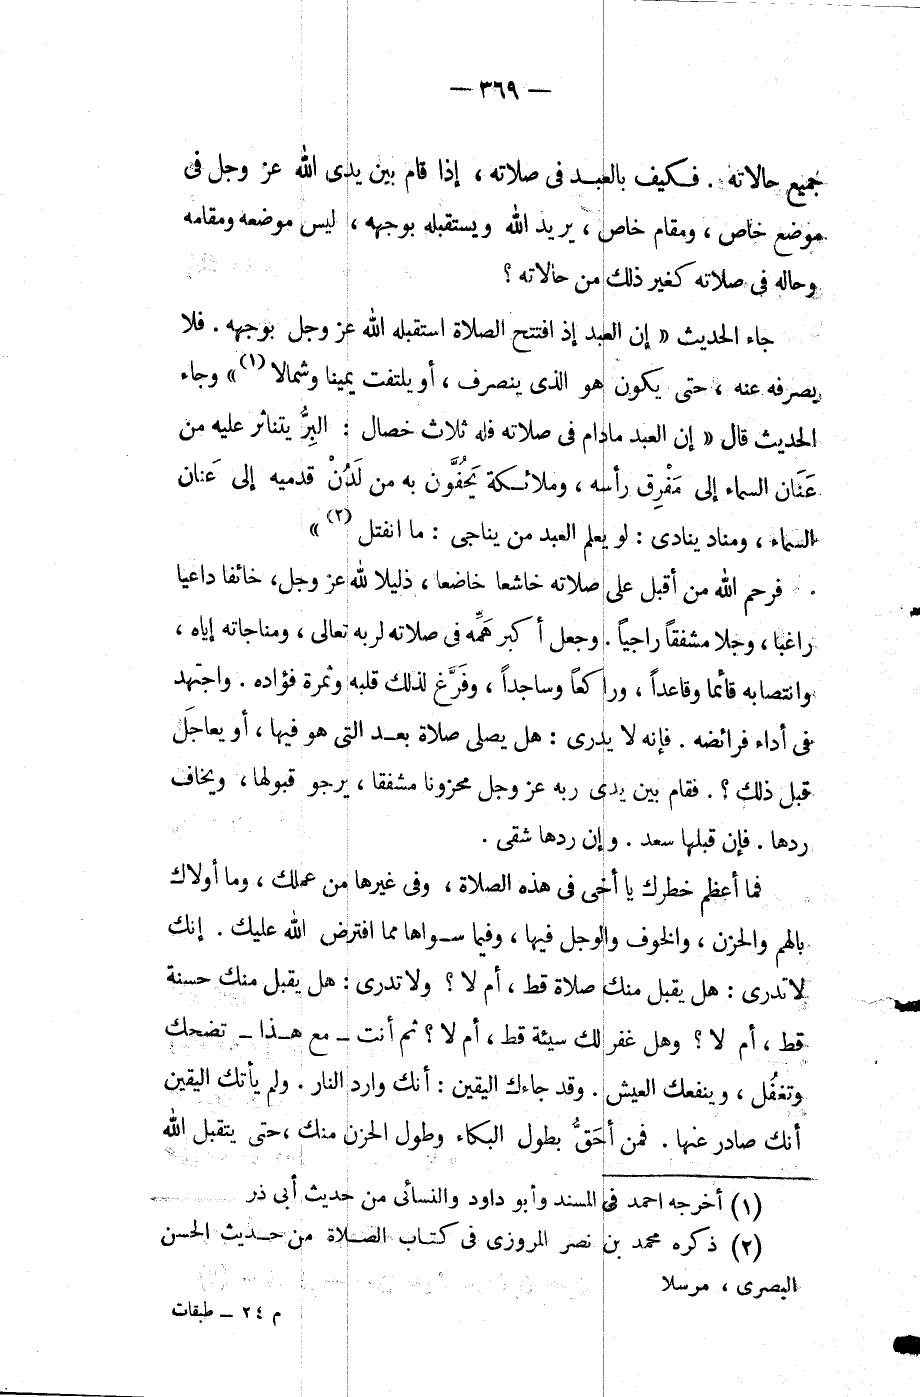 — ٣٦٩ —
جميع حالاته . فـكيف بالعبـد فى صلاته ، إذا قام بين يدى الله عز وجل فى
موضع خاص ، ومقام خاص ، يريد الله ويستقبله بوجهه ، ليس موضعه ومقامه
وحاله فى صلاته كغير ذلك من حالاته ؟
جاء الحديث « إن العبد إذ افتتح الصلاة استقبله الله عز وجل بوجهه . فلا
يصرفه عنه ، حتى يكون هو الذى ينصرف ، أو يلتفت يمينا وشمالا (١) » وجاء
الحديث قال « إن العبد مادام فى صلاته فله ثلاث خصال : البِرُّ يتناثر عليه من
عَنَان السماء إلى مَفْرِق رأسه ، وملائـكة يَحُفُّون به من لَدُنْ قدميه إلى عَنان
السماء ، ومناد ينادى : لو يعلم العبد من يناجى : ما انفتل (٢) »
فرحم الله من أقبل على صلاته خاشعا خاضعا ، ذليلا لله عز وجل، خائفا داعيا
راغبا ، وجلا مشفقاً راجياً . وجعل أكبر هَمِّه فى صلاته لربه تعالى ، ومناجاته إياه ،
وانتصابه قائما وقاعداً ، وراكعاً وساجداً ، وفَرَّغ لذلك قلبه وثمرة فؤاده . واجتهد
فى أداء فرائضه . فإنه لا يدرى : هل يصلى صلاة بعـد التى هو فيها ، أو يعاجَل
قبل ذلك ؟ . فقام بين يدى ربه عز وجل محزونا مشفقا ، يرجو قبولها ، ويخاف
ردها . فإن قبلها سعد . وإن ردها شقى .
فما أعظم خطرك يا أخى فى هذه الصلاة ، وفى غيرها من عملك ، وما أولاك
بالهم والحزن ، والخوف والوجل فيها ، وفيما سـواها مما افترض الله عليك . إنك
لا تدرى : هل يقبل منك صلاة قط ، أم لا ؟ ولا تدرى : هل يقبل منك حسنة
قط ، أم لا ؟ وهل غفر لك سيئة قط ، أم لا ؟ ثم أنت ــ مع هـذا ــ تضحك
وتغفُل ، وينفعك العيش . وقد جاءك اليقين : أنك وارد النار . ولم يأتك اليقين
أنك صادر عنها . فمن أحَقُّ بطول البكاء وطول الحزن منك ،حتى يتقبل الله
(١) أخرجه احمد فى المسند وأبو داود والنسائى من حديث أبى ذر
(٢) ذكره محمد بن نصر المروزى فى كتـاب الصـلاة من حـديث الحسن
البصرى ، مرسلا
م ٢٤ ــ طبقات